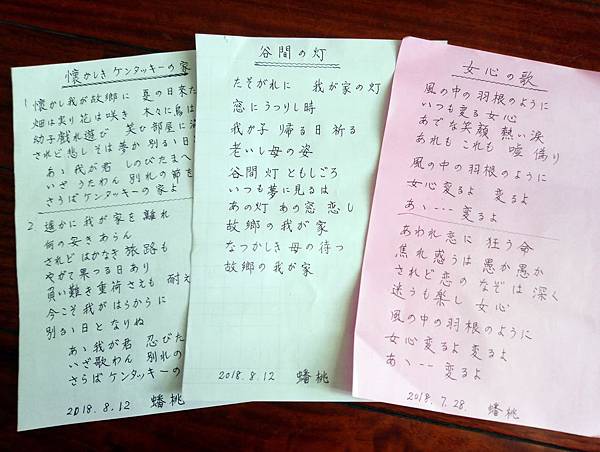 懐かしきケンタッキーの家
1 懐かし我が故郷に 夏の日来た
畑は実り花は咲き 木々に鳥は
幼子戯れ遊び 笑ひ部屋に
されど悲しそは夢か 別るゝ日
あゝ我が君 しのびたまへ
いざ うたわん 別れの節を
さらばケンタッキーの家よ
2 遠かに 我が家を 離れ
何の安き あらん
されど はかなき 旅路も
やがて果つる日あり
負い難き重荷さえも 耐え
今こそ我が はらからに
別るゝ日と なりね
あゝ我が君 忍びた
いざ歌わん 別れの
さらばケンタッキーの
2018.8.12 蟠桃
谷間の灯
たそがれに 我が家の灯
窓にうつりし時
我が子 帰る日 祈る
老いし母の姿
谷間灯 ともしごろ
いつも夢に見るは
あの灯 あの窓 恋し
故郷の我が家
なつかしき 母の待つ
故郷の我が家
2018.8.12 蟠桃
女心の歌
風の中の羽根のように
いつも変る女心
あでな笑顔 熱い涙
あれも これも 嘘 偽り
風の中の羽根のように
女心変るよ 変るよ
あゝ---- 変るよ
あわれ恋に 狂う命
焦れ惑うは 愚か愚か
されど恋の なぞは 深く
迷うも楽し 女心
風の中の羽根のように
女心変るよ 変るよ
あゝ---- 変るよ
2018.7.28. 蟠桃